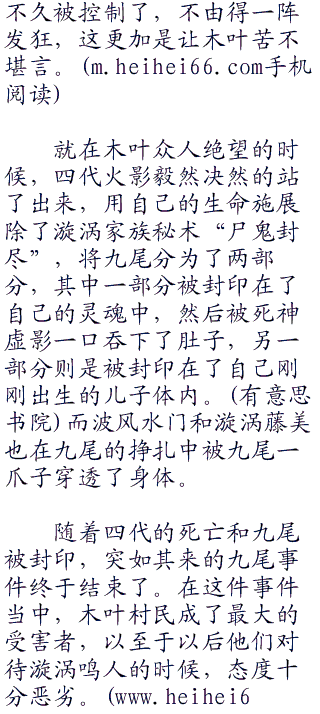 不久被控制了，不由得一阵
发狂，这更加是让木叶苦不
堪言。(m.heihei66.com手机
阅读)
就在木叶众人绝望的时
候，四代火影毅然决然的站
了出来，用自己的生命施展
除了漩涡家族秘术“尸鬼封
尽”，将九尾分为了两部
分，其中一部分被封印在了
自己的灵魂中，然后被死神
虚影一口吞下了肚子，另一
部分则是被封印在了自己刚
刚出生的儿子体内。(有意思
书院)而波风水门和漩涡藤美
也在九尾的挣扎中被九尾一
爪子穿透了身体。
随着四代的死亡和九尾
被封印，突如其来的九尾事
件终于结束了。在这件事件
当中，木叶村民成了最大的
受害者，以至于以后他们对
待漩涡鸣人的时候，态度十
分恶劣。(www.heihei6